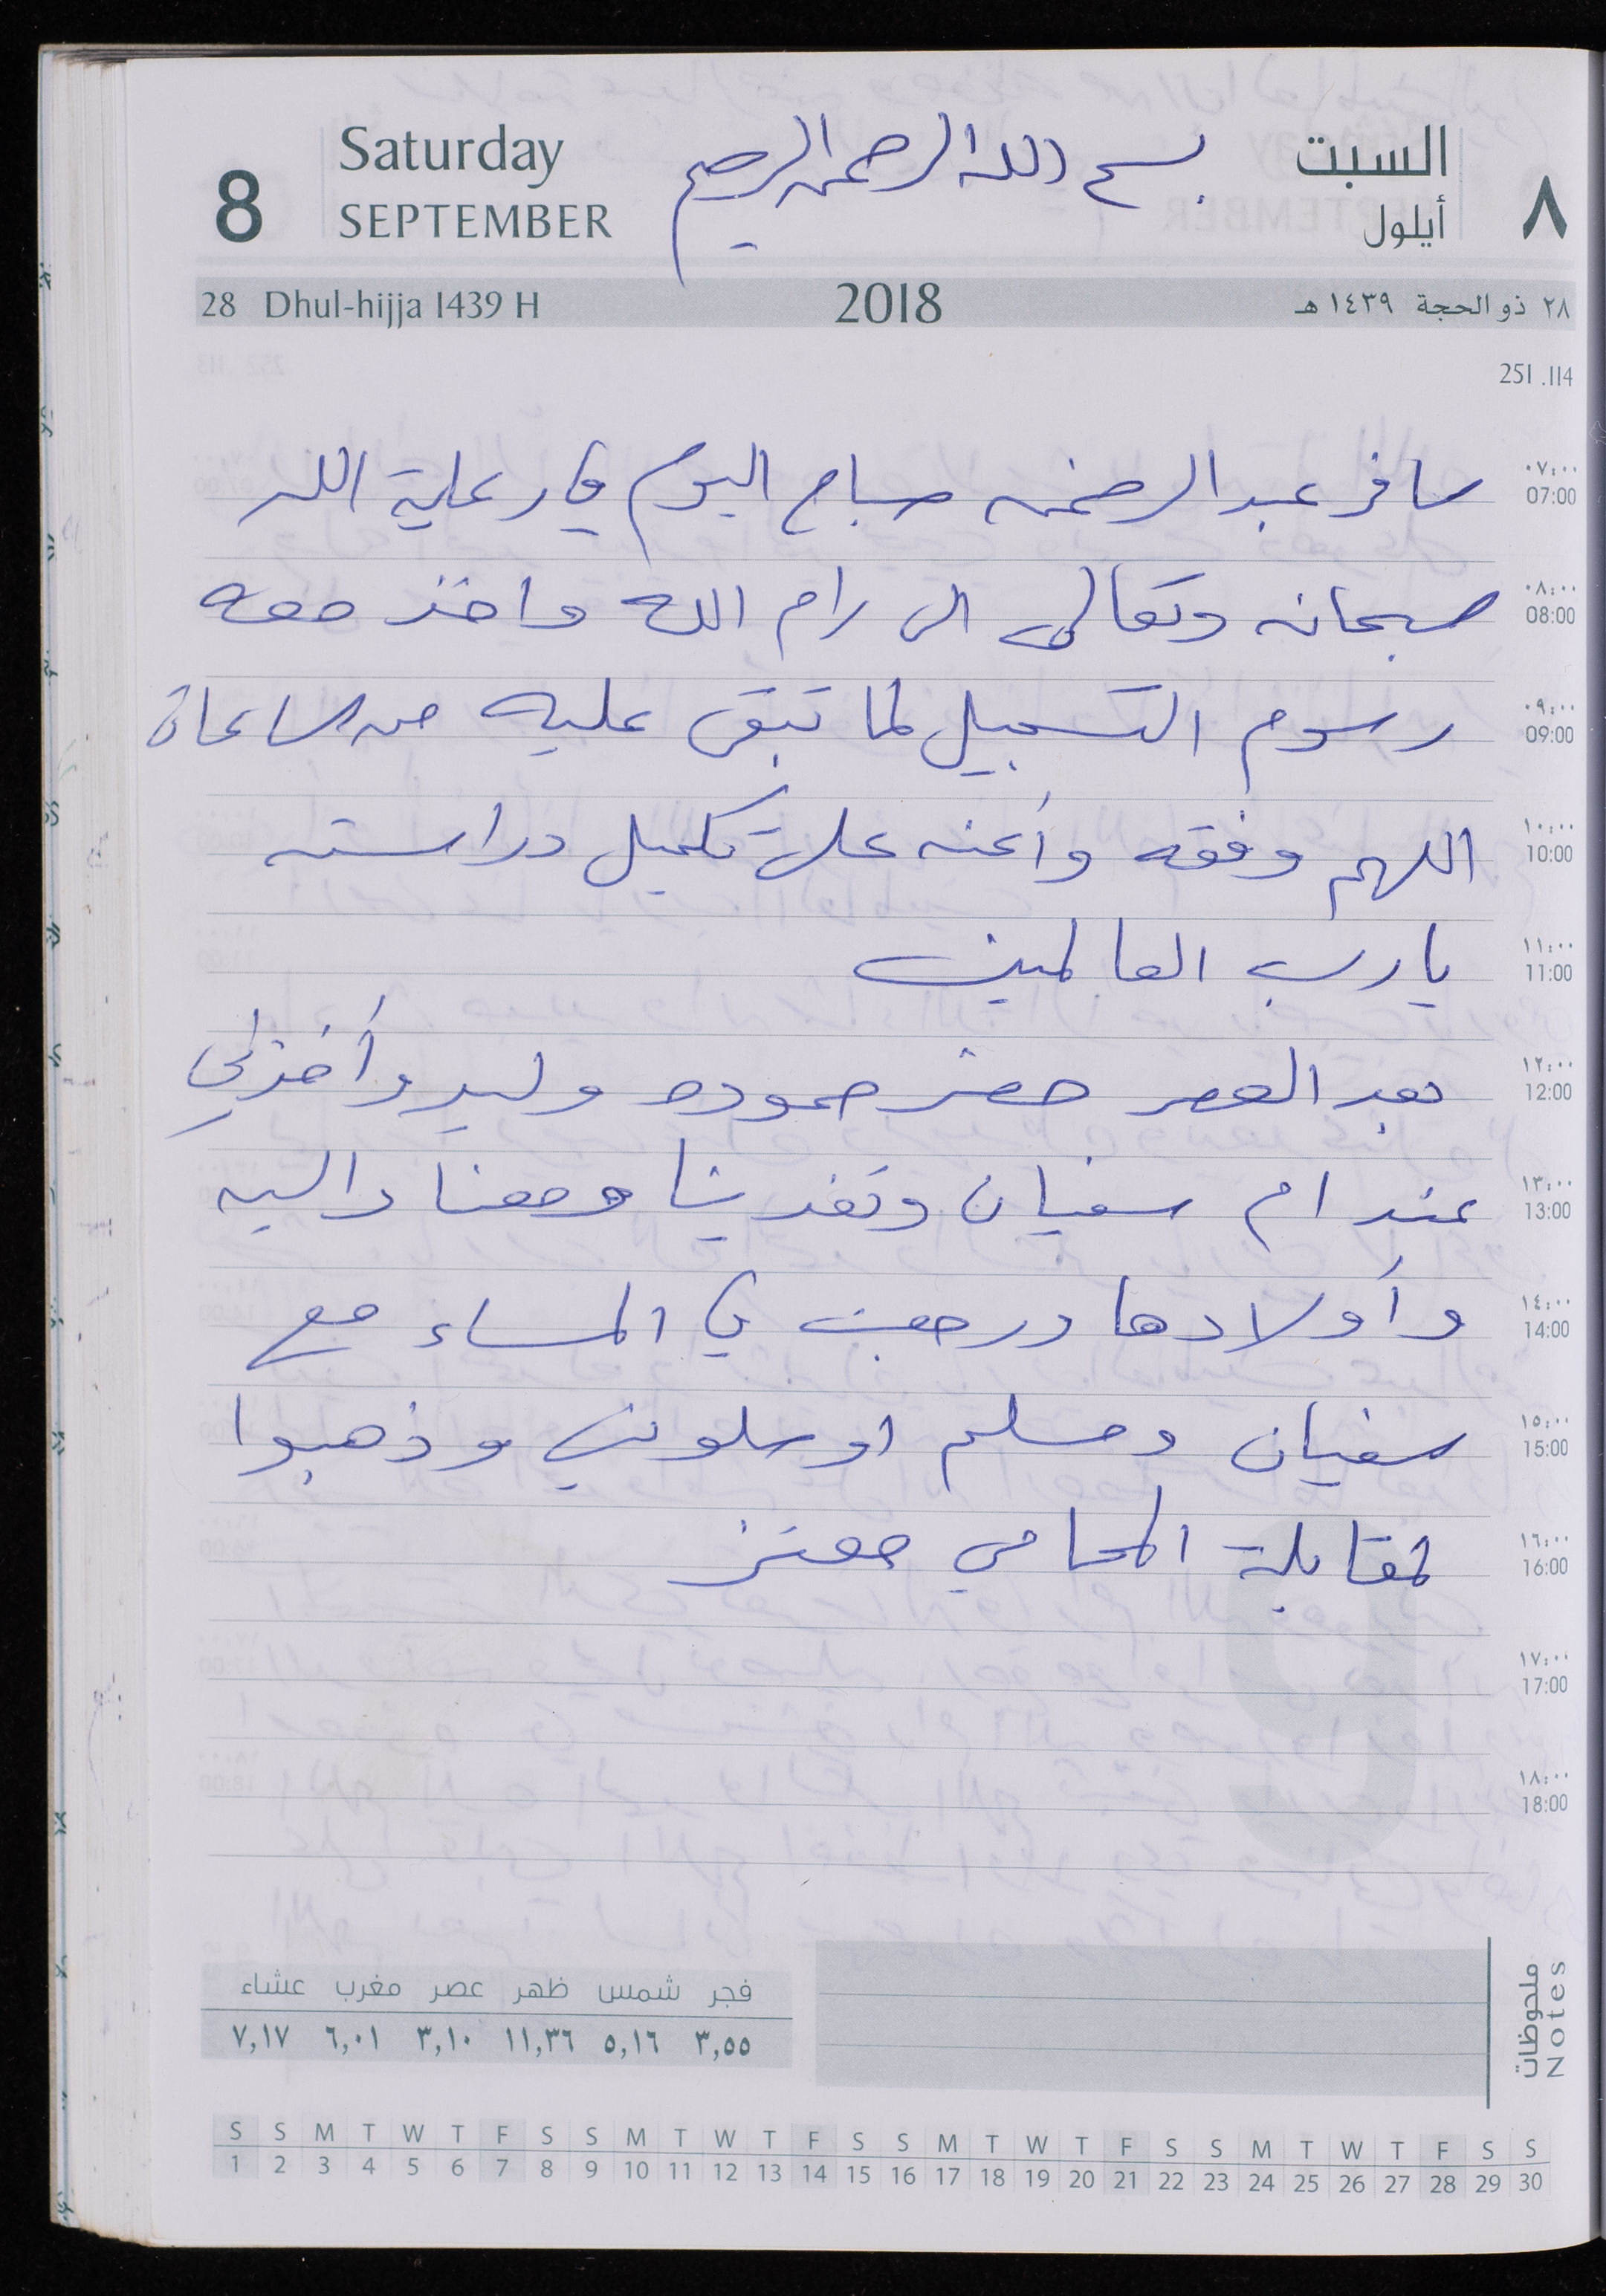 8
Saturday
SEPTEMBER
بسم الله الرحمن الرحيم
السبت
أيلول
٨
28 Dhul-hijja 1439 H
2018
٢٨ ذو الحجة ١٤٣٩ هـ
251 .114
٠٧:٠٠
07:00
سافر عبد الرحمن صباح اليوم في رعاية الله
٠٨:٠٠
08:00
سبحانه وتعالى الى رام الله واخذ معه
٠٩:٠٠
09:00
رسوم التسجيل لما تبقى عليه من الساعات
١٠:٠٠
10:00
اللهم وفقه وأعنه على تكميل دراسته
١١:٠٠
11:00
يا رب العالمين
١٢:٠٠
12:00
بعد العصر حضر حموده وليد وأخذني
١٣:٠٠
13:00
عند ام سفيان وتغدينا ومعنا داليه
١٤:٠٠
14:00
وأولادها ورجعت في المساء مع
١٥:٠٠
15:00
سفيان ومسلم اوصلوني وذهبوا
١٦:٠٠
16:00
لمقابلة المحامي معتز
١٧:٠٠
17:00
١٨:٠٠
18:00
ملحوظات
Notes
فجر شمس ظهر عصر مغرب عشاء
٣,٥٥ ٥,١٦ ١١,٣٦ ٣,١٠ ٦,٠١ ٧,١٧
S S M T W T F S S M T W T F S S M T W T F S S M T W T F S S
1 2 3 4 5 6 7 8 9 10 11 12 13 14 15 16 17 18 19 20 21 22 23 24 25 26 27 28 29 30